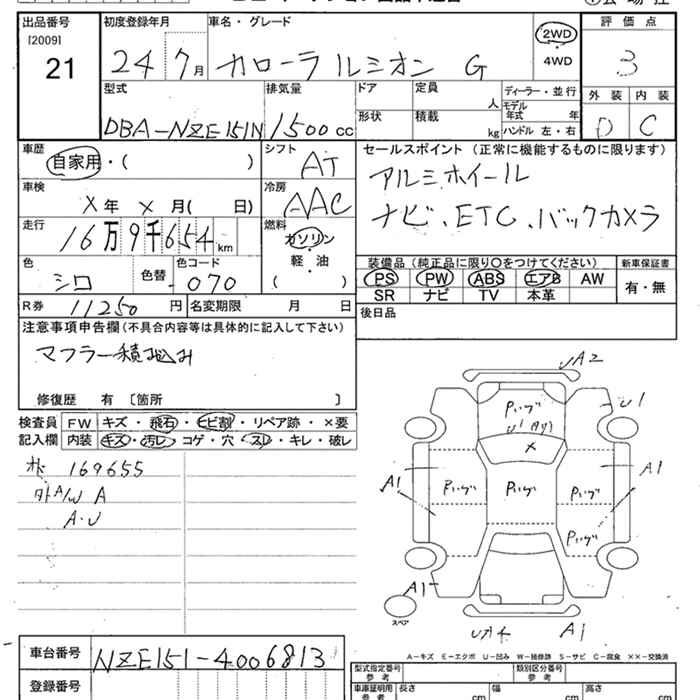 出品番号 初度登録年月 車名・グレード 2WD ・ 4WD 評価点
[2009] 21 24 7月 カローラ ルミオン G 3
型式 排気量 ドア 定員 人 ディーラー・並行 外装 内装
DBA-NZE151N 1500cc 形状 積載 kg モデル年式 年 ハンドル 左・右 D C
車歴 自家用・( ) シフト AT セールスポイント (正常に機能するものに限ります)
車検 X年 X月( 日) 冷房 AAC アルミホイール
走行 16万9千654km 燃料 ガソリン・軽・油 ( ) ナビ、ETC、バックカメラ
色 シロ 色替 色コード 070 装備品 (純正品に限り○をつけてください) 新車保証書
PS PW ABS エアB AW 有・無
SR ナビ TV 本革
R券 11250円 名変期限 月 日 後日品
注意事項申告欄(不具合内容等は具体的に記入して下さい)
マフラー積込み
修復歴 有 〔箇所 〕
検査員記入欄 FW キズ・飛石・ヒビ割・リペア跡・×要
内装 キズ・汚レ・コゲ・穴・スレ・キレ・破レ
169655
外A/W A
A・U
UA2
Pいげ
U1
U1
×
A1 Pいげ Pいげ Pいげ A1
Pいげ
A1
スペア
A1
A-キズ E-エクボ U-凹み W-補修跡 S-サビ C-腐食 ××-交換済
車台番号 NZE151-4006813 型式指定番号 参考 類別区分番号 参考
登録番号 車庫証明用 参考 長さ cm 幅 cm 高さ cm